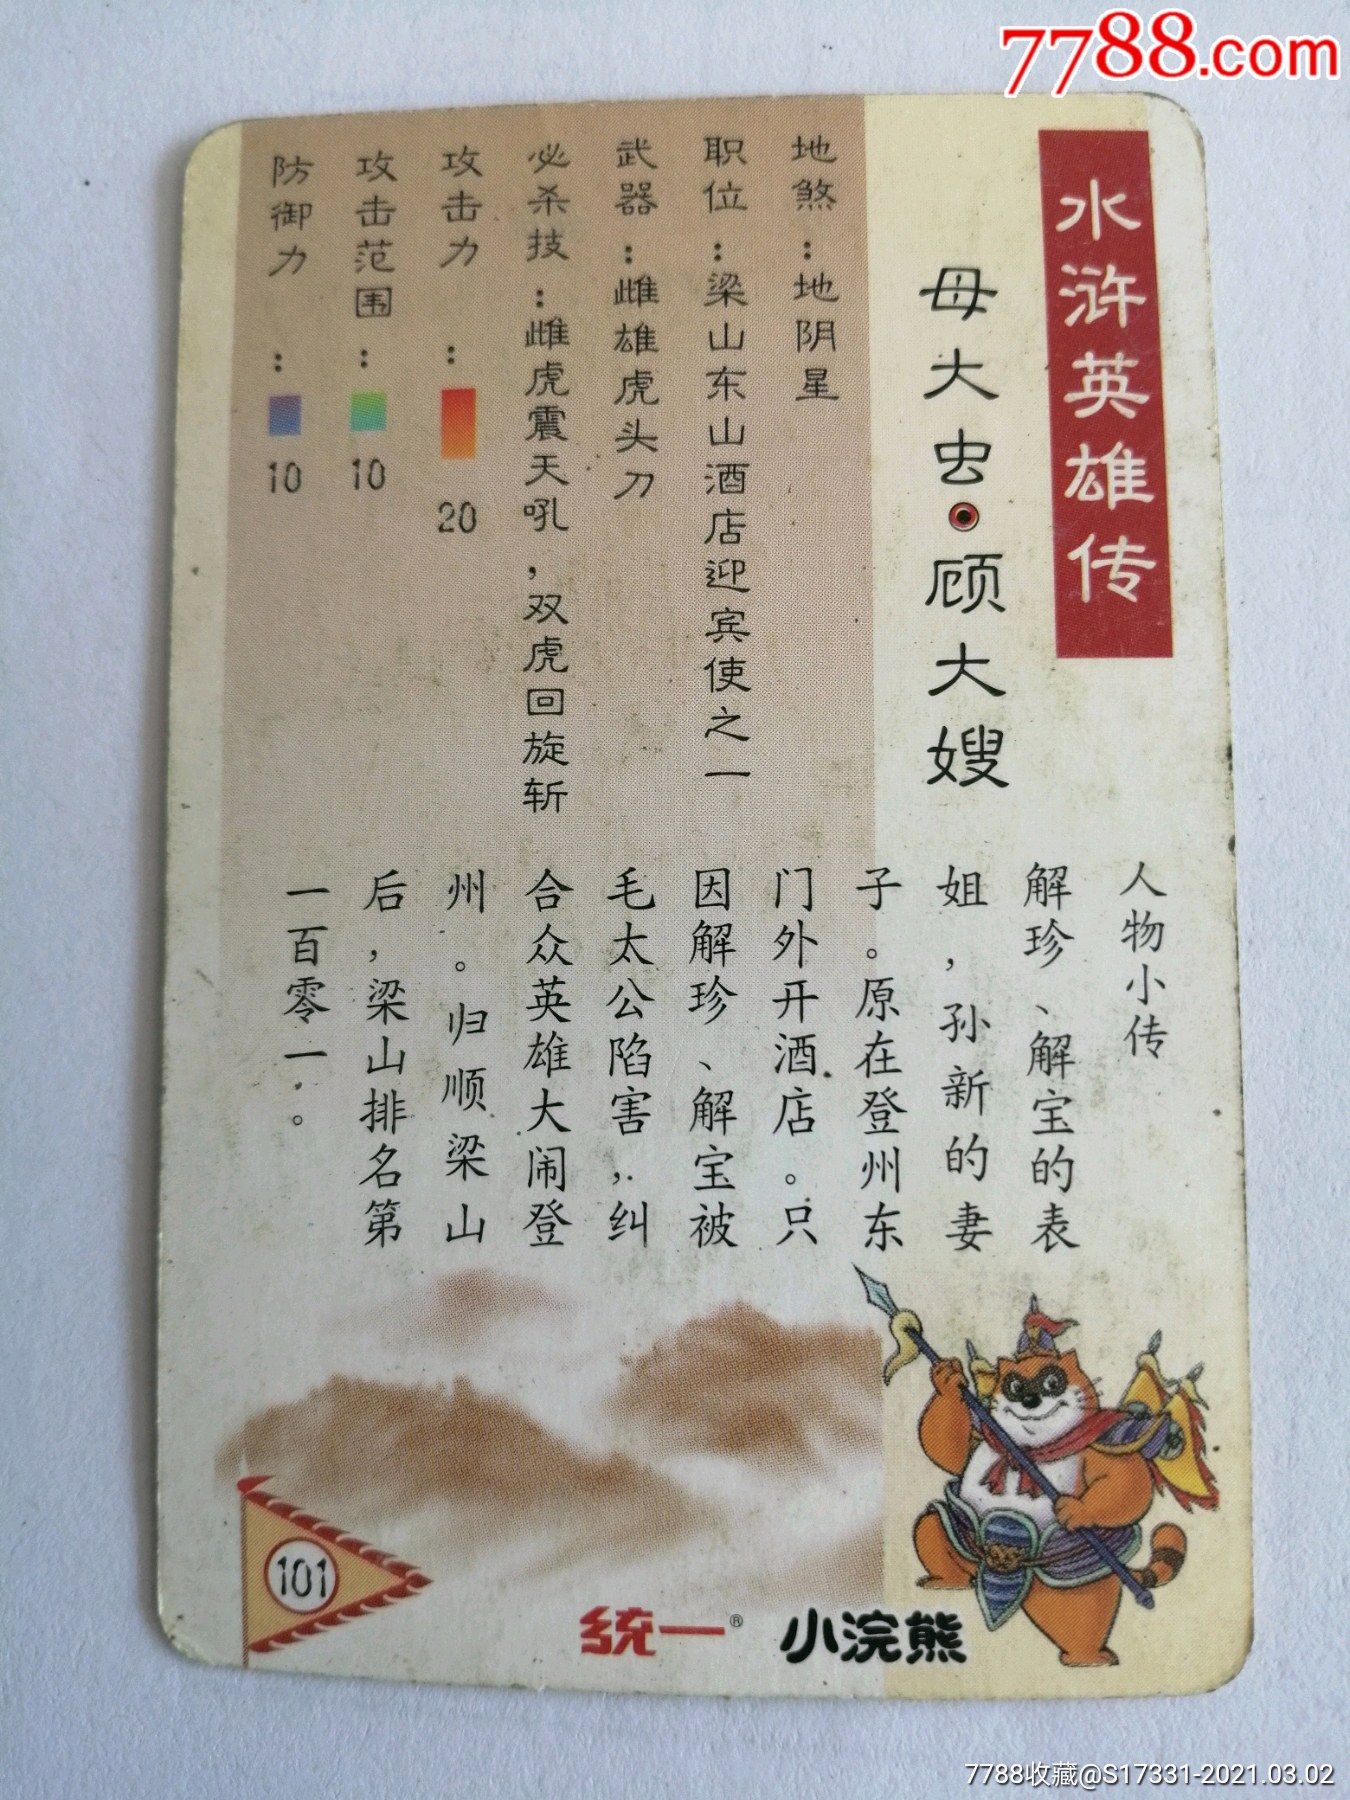 7788.com
水浒英雄传
母大虫·顾大嫂
地煞:地阴星
职位:梁山东山酒店迎宾使之一
武器:雌雄虎头刀
必杀技:雌虎震天吼,双虎回旋斩
攻击力:20
攻击范围:10
防御力:10
人物小传
解珍、解宝的表
姐,孙新的妻
子。原在登州东
门外开酒店。只
因解珍、解宝被
毛太公陷害,纠
合众英雄大闹登
州。归顺梁山
后,梁山排名第
一百零一。
101
統一® 小浣熊
7788收藏@S17331-2021.03.02